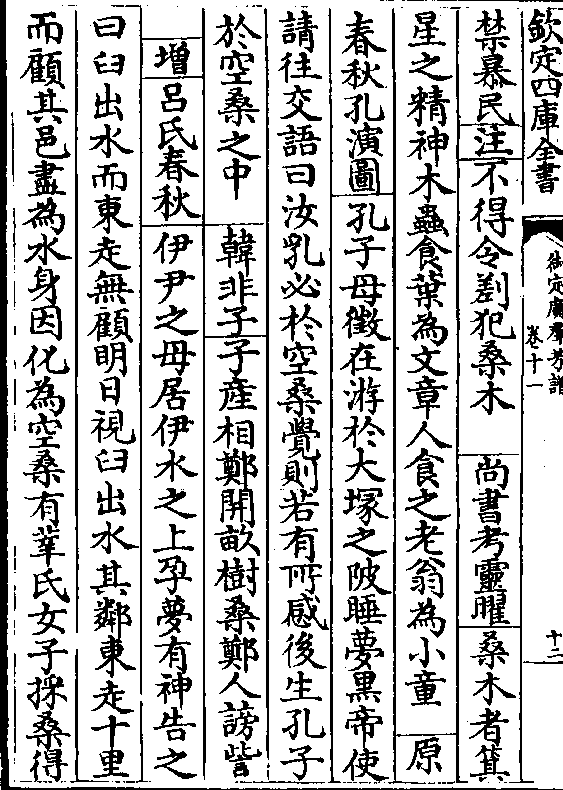 欽定四庫全書
御定廣羣芳譜
卷十一
十二
禁慕民注不得令剗犯桑木 尚書考靈曜桑木者箕
星之精神木蟲食葉為文章人食之老翁為小童 原
春秋孔演圖孔子母徵在游於大塚之陂睡夢黒帝使
請往交語曰汝乳必於空桑覺則若有所感後生孔子
於空桑之中 韓非子子產相鄭開畝樹桑鄭人謗訾
增吕氏春秋伊尹之母居伊水之上孕夢有神告之
曰臼出水而東走無顧明日視臼出水其鄰東走十里
而顧其邑盡為水身因化為空桑有莘氏女子採桑得